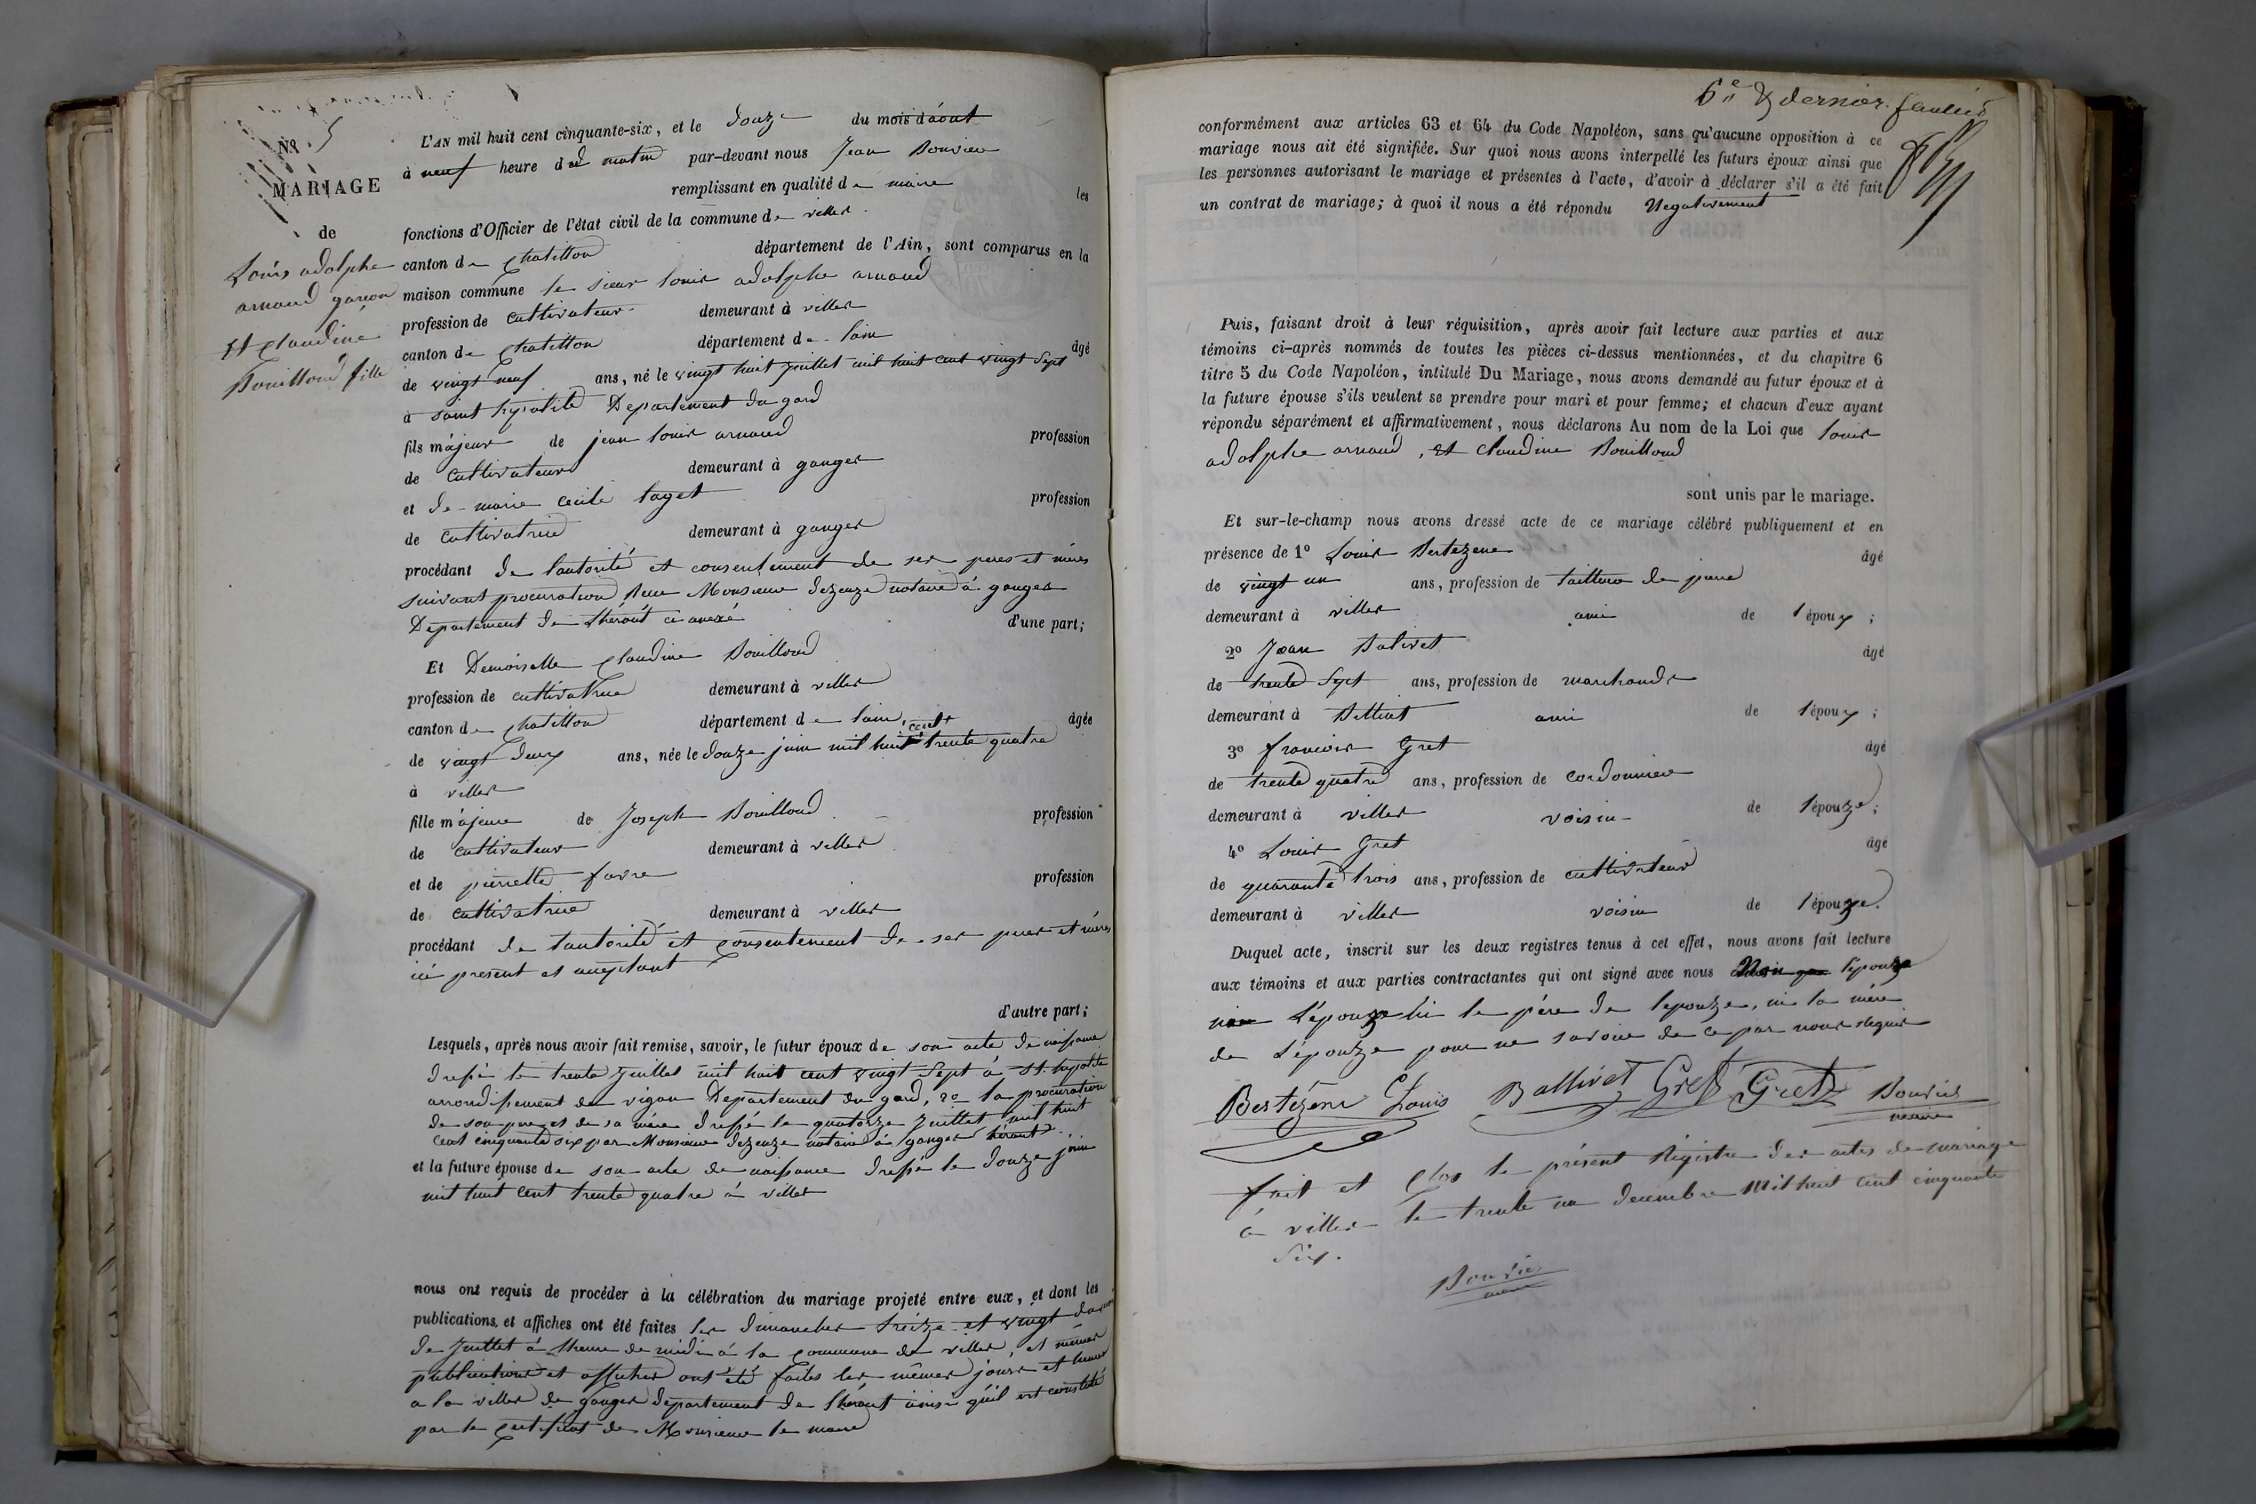 N° 5
MARIAGE
de
Louis adolphe
arnaud garcon
Et claudine
Bouilloud fille
L'AN mil huit cent cinquante-six, et le douze du mois d'aout
à neuf heure du matin par-devant nous Jean Bouvier
remplissant en qualité de maire les
fonctions d'Officier de l'état civil de la commune de villes
canton de chatillon département de l'Ain, sont comparus en la
maison commune le sieur louis adolphe arnaud
profession de cultivateur demeurant à villes
canton de chatillon département de lain âgé
de vingt neuf ans, né le vingt huit juillet mil huit cent vingt sept
à saint hypolite Departement du gard
fils majeur de jean louis arnaud profession
de cultivateur demeurant à ganges
et de marie cecile taget profession
de cultivatrice demeurant à ganges
procédant de lautorité et consentement de ses peres et mères
suivant procuration Mousieur dezeuze notaire à ganges
Departement de lhéraut ci anexé d'une part;
Et Demoiselle claudine Bouilloud
profession de cultivatrice demeurant à villes
canton de chatillon département de lain, âgée
de vingt deux ans, née le douze juin mil huit cent trente quatre
à villes
fille majeure de Joseph Bouilloud profession
de cultivateur demeurant à villes
et de pierrette favre profession
de cultivatrice demeurant à villes
procédant de lautorité et consentement de ses peres et mères
ici present et acceptant
d'autre part;
Lesquels, après nous avoir fait remise, savoir, le futur époux de son acte de naissance
dressé le trente juillet mil huit cent vingt sept à St. hypolite
arrondissement du vigan Departement du gard, 2° la procuration
de son pere et de sa mère dressé le quatorze juillet mil huit
cent cinquante six par Monsieur dezeuze notaire à ganges héraut
et la future épouse de son acte de naissance dressé le douze juin
mil huit cent trente quatre à villes
nous ont requis de procéder à la célébration du mariage projeté entre eux, et dont les
publications et affiches ont été faites les dimanches treize et vingt
de juillet à lheure de midi à la commune de villes, et mêmes
publications et affiches ont été faites les mêmes jours et heures
a la villes de ganges departement de lhéraut ainsi qu'il est constaté
par le certificat de Monsieur le maire
6e & dernier feuillet
conformément aux articles 63 et 64 du Code Napoléon, sans qu'aucune opposition à ce
mariage nous ait été signifiée. Sur quoi nous avons interpellé les futurs époux ainsi que
les personnes autorisant le mariage et présentes à l'acte, d'avoir à déclarer s'il a été fait
un contrat de mariage; à quoi il nous a été répondu Negativement
Puis, faisant droit à leur réquisition, après avoir fait lecture aux parties et aux
témoins ci-après nommés de toutes les pièces ci-dessus mentionnées, et du chapitre 6
titre 5 du Code Napoléon, intitulé Du Mariage, nous avons demandé au futur époux et à
la future épouse s'ils veulent se prendre pour mari et pour femme; et chacun d'eux ayant
répondu séparément et affirmativement, nous déclarons Au nom de la Loi que louis
adolphe arnaud, et claudine Bouilloud
sont unis par le mariage.
Et sur-le-champ nous avons dressé acte de ce mariage célébré publiquement et en
présence de 1° Louis Bertezene âgé
de vingt un ans, profession de tailleur de pierre
demeurant à villes ami de l'époux;
2° Jean Balivet âgé
de trente Sept ans, profession de marchands
demeurant à Billiat ami de l'époux;
3° francois Gret âgé
de trente quatre ans, profession de cordonnier
demeurant à villes voisin de l'épouze;
4° Louis Gret âgé
de quarante trois ans, profession de cultivateur
demeurant à villes voisin de l'épouze.
Duquel acte, inscrit sur les deux registres tenus à cet effet, nous avons fait lecture
aux témoins et aux parties contractantes qui ont signé avec nous l'épouze
L'épouze ni le père de lepouze, ni la mère
de L'épouze pour ne savoir de ce par nous requis
Bertézène Louis Ballivet Gret Gret Bouvier
maire
fait et clos le présent Régistre des actes de mariage
à villes le trente un decembre Mil huit cent cinquante
Six.
Bouvier
maire